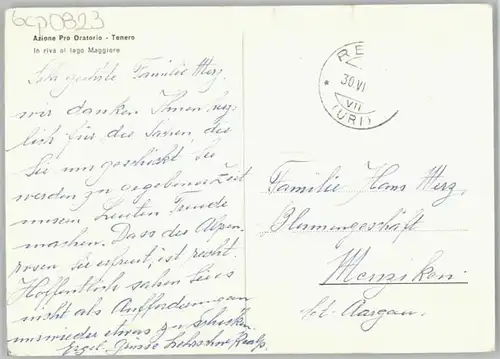 bcp0823
Azione Pro Oratorio - Tenero
In riva al lago Maggiore
Sehr geehrte Familie Merz,
wir danken Ihnen herz
lich für des Samen des
Sie uns geschickt. Sie
werden zu gegebener Zeit
unsern Leuten Freude
machen. Dass die Alpen
rosen Sie erfreut, ist recht.
Hoffentlich sahen Sie es
nicht als Aufforderungen
uns wieder etwas zu schicken.
Ergeb. Grüsse
RE
30.VI
VII
(URI)
Familie Hans Merz
Blumengeschäft
Menziken
Aargau